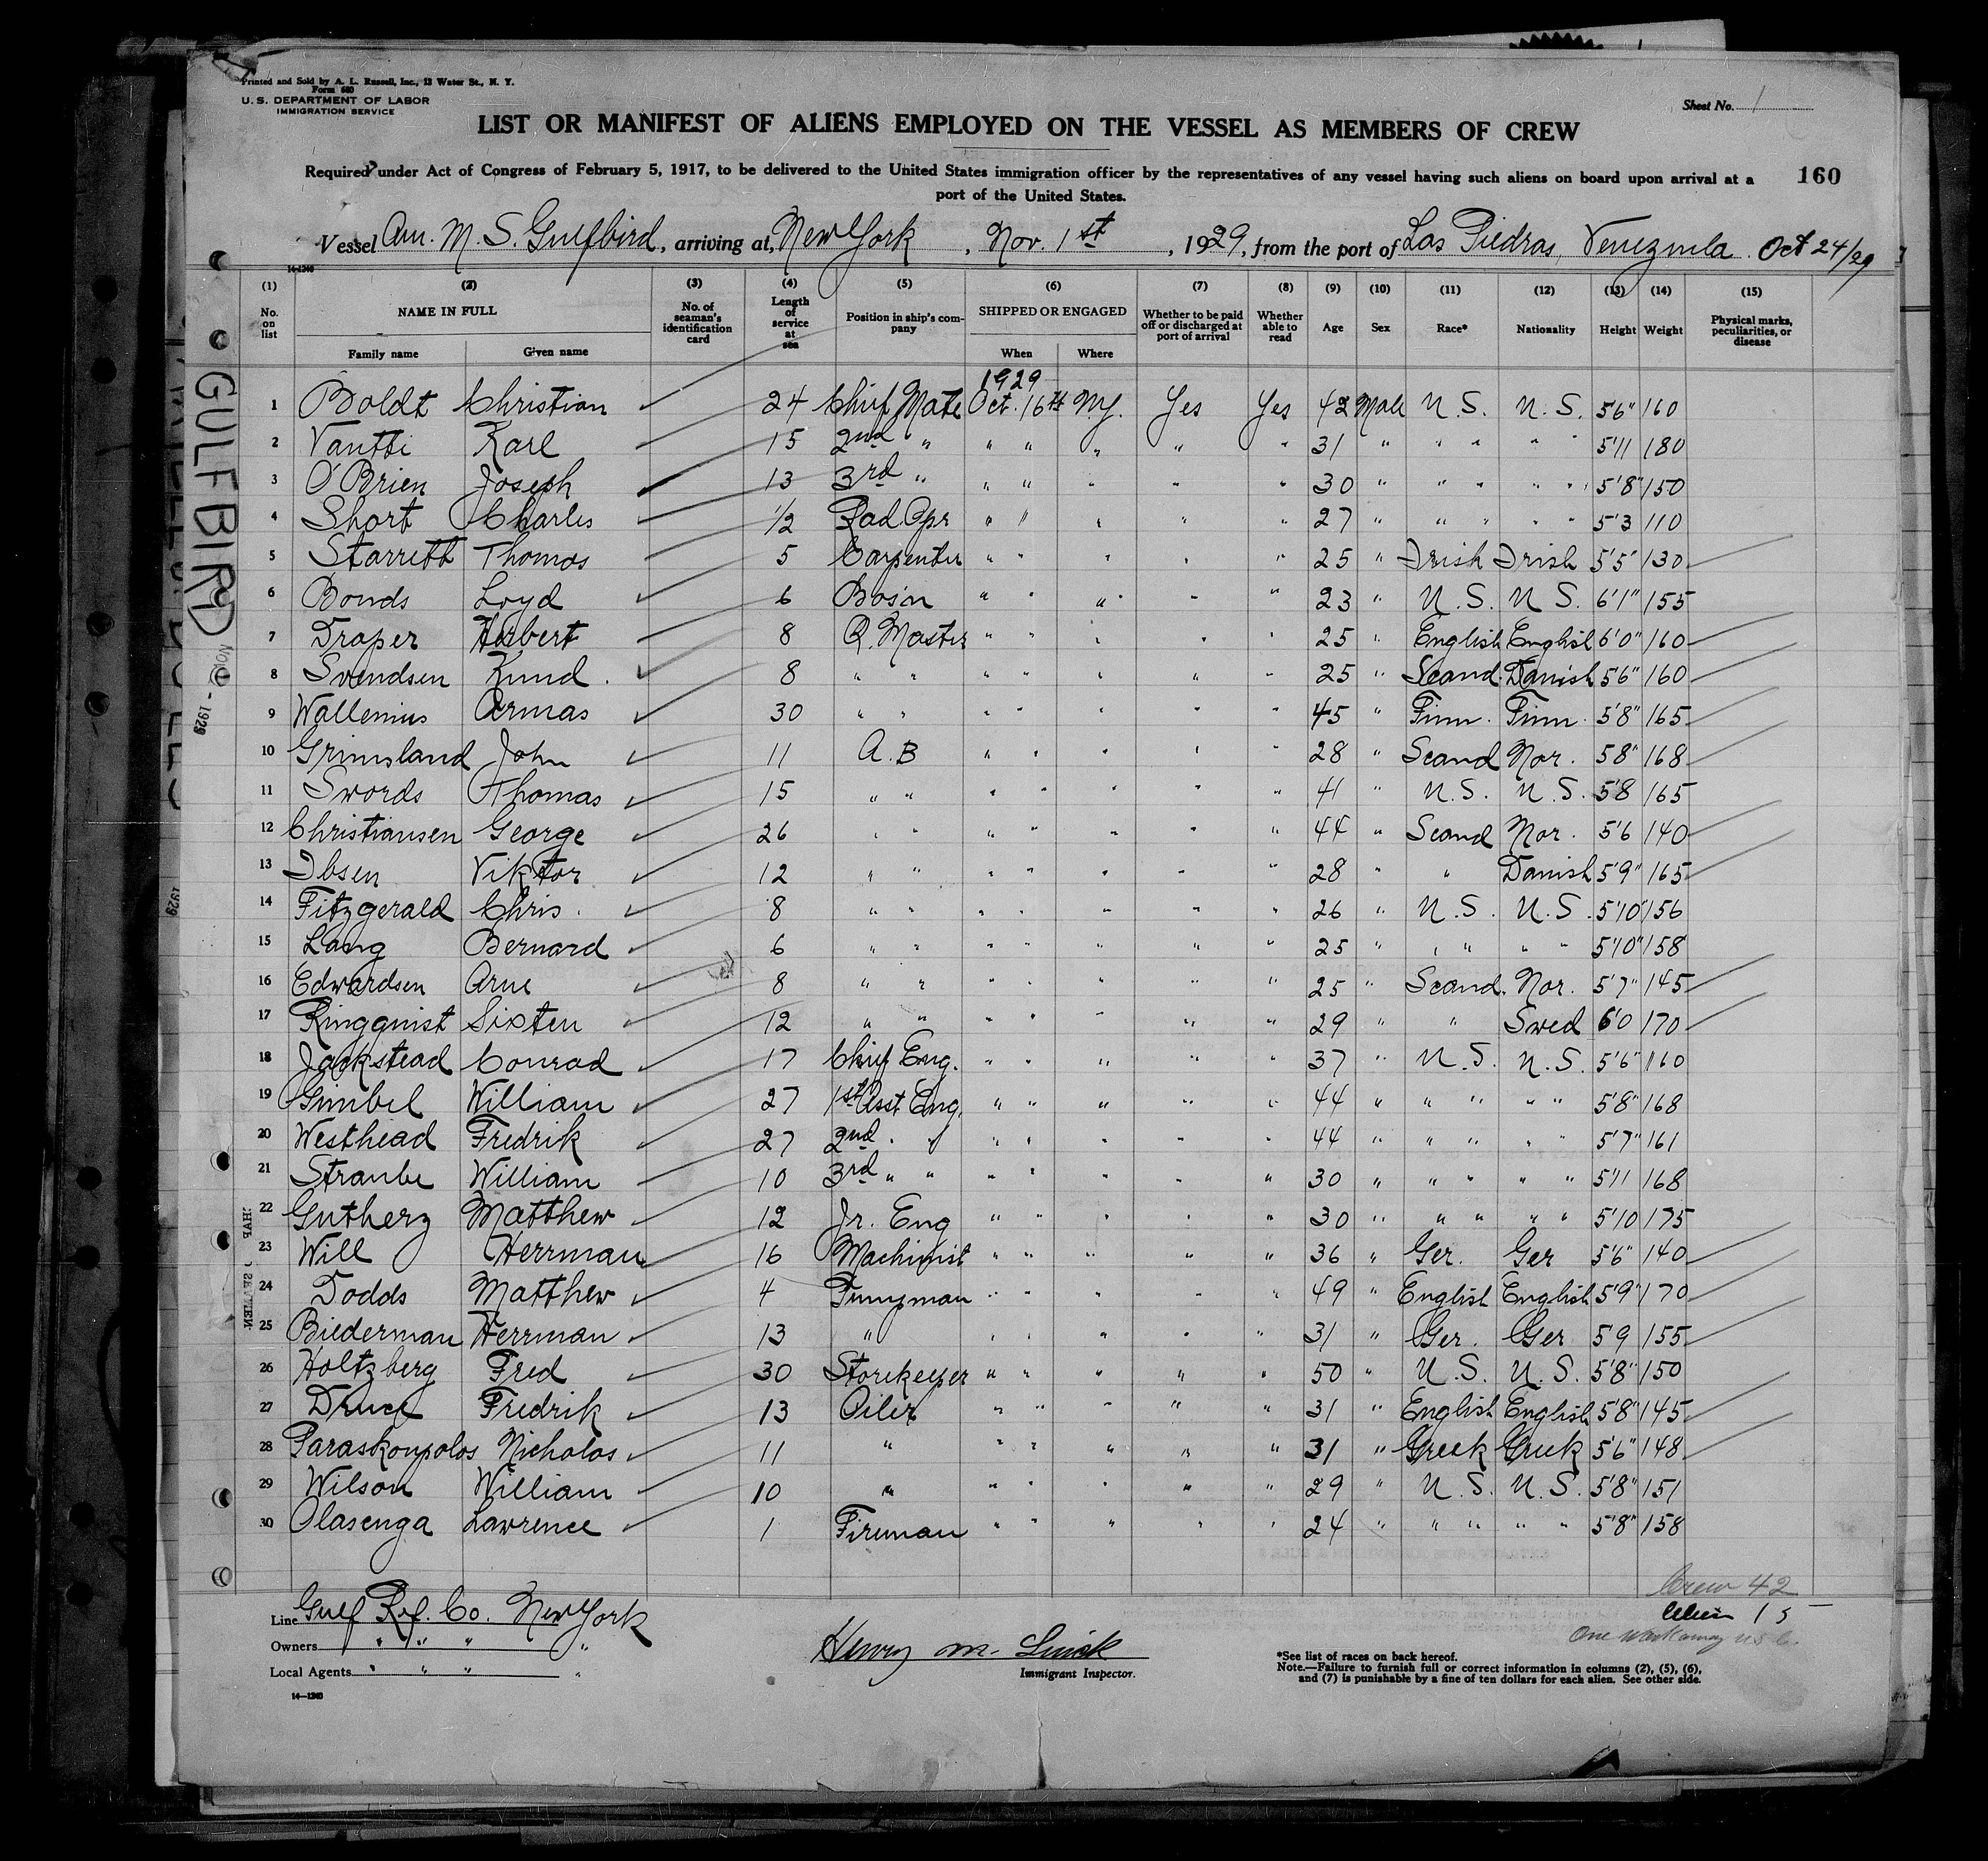 Printed and Sold by A. L. Russell, Inc., 13 Water St., N. Y.
Form 680
U. S. DEPARTMENT OF LABOR
IMMIGRATION SERVICE
Sheet No. 1
LIST OR MANIFEST OF ALIENS EMPLOYED ON THE VESSEL AS MEMBERS OF CREW
Required under Act of Congress of February 5, 1917, to be delivered to the United States immigration officer by the representatives of any vessel having such aliens on board upon arrival at a
port of the United States.
160
Vessel Am. M. S. Gulfbird, arriving at, New York, Nov. 1st, 1929, from the port of Las Piedras, Venezuela. Oct 24/29
14-1240
(1) (2) (3) (4) (5) (6) (7) (8) (9) (10) (11) (12) (13) (14) (15)
No. on list NAME IN FULL No. of seaman's identification card Length of service at sea Position in ship's company SHIPPED OR ENGAGED Whether to be paid off or discharged at port of arrival Whether able to read Age Sex Race* Nationality Height Weight Physical marks, peculiarities, or disease
Family name Given name When Where
1929
1 Boldt Christian 24 Chief Mate Oct. 16th N.Y. Yes Yes 42 Male U.S. U.S. 5'6" 160
2 Vantti Karl 15 2nd " " " " " " 31 " " " " " 5'11 180
3 O'Brien Joseph 13 3rd " " " " " " 30 " " " " " 5'8" 150
4 Short Charles 1/2 Rad. Opr " " " " " 27 " " " " " 5'3 110
5 Starrett Thomas 5 Carpenter " " " " " 25 " Irish Irish 5'5" 130
6 Bonds Loyd 6 Bos'n " " " " " 23 " U.S. U.S. 6'1" 155
7 Draper Herbert 8 Q. Master " " " " " 25 " English English 6'0" 160
8 Svendsen Knud. 8 " " " " " " " 25 " Scand. Danish 5'6" 160
9 Wallenius Armas 30 " " " " " " " 45 " Finn. Finn. 5'8" 165
10 Grimsland John 11 A.B " " " " " 28 " Scand Nor. 5'8" 168
11 Swords Thomas 15 " " " " " " " 41 " U.S. U.S. 5'8 165
12 Christiansen George 26 " " " " " " " 44 " Scand Nor. 5'6 140
13 Ibsen Viktor 12 " " " " " " " 28 " " Danish 5'9" 165
14 Fitzgerald Chris. 8 " " " " " " " 26 " U.S. U.S. 5'10" 156
15 Lang Bernard 6 " " " " " " " 25 " " " " " 5'10" 158
16 Edwardsen Arne 8 " " " " " " " 25 " Scand. Nor. 5'7" 145
17 Ringquist Sixten 12 " " " " " " " 29 " " Swed 6'0 170
18 Jackstead Conrad 17 Chief Eng. " " " " " 37 " U.S. U.S. 5'6" 160
19 Gimbel William 27 1st Asst Eng. " " " " " 44 " " " " " 5'8" 168
20 Westhead Fredrik 27 2nd " " " " " " " 44 " " " " " 5'7" 161
21 Straube William 10 3rd " " " " " " " 30 " " " " " 5'11 168
22 Gutherz Matthew 12 Jr. Eng " " " " " 30 " " " " " 5'10 175
23 Will Herrman 16 Machinist " " " " " 36 " Ger. Ger 5'6" 140
24 Dodds Matthew 4 Pumpman " " " " " 49 " English English 5'9" 170
25 Biederman Herrman 13 " " " " " " 31 " Ger. Ger 5'9 155
26 Holtzberg Fred 30 Storekeeper " " " " " 50 " U.S. U.S. 5'8" 150
27 Druce Fredrik 13 Oiler " " " " " 31 " English English 5'8" 145
28 Paraskoupolos Nicholas 11 " " " " " " 31 " Greek Greek 5'6" 148
29 Wilson William 10 " " " " " " 29 " U.S. U.S. 5'8" 151
30 Olasenga Lawrence 1 Fireman " " " " " 24 " " " " " 5'8" 158
Crew 42
Alien 15
One Workaway
Line Gulf Ref. Co. New York
Owners " " " "
Local Agents " " " "
14-1240
Henry M.
Immigrant Inspector.
*See list of races on back hereof.
Note.—Failure to furnish full or correct information in columns (2), (5), (6),
and (7) is punishable by a fine of ten dollars for each alien. See other side.
GULFBIRD
1929
1929